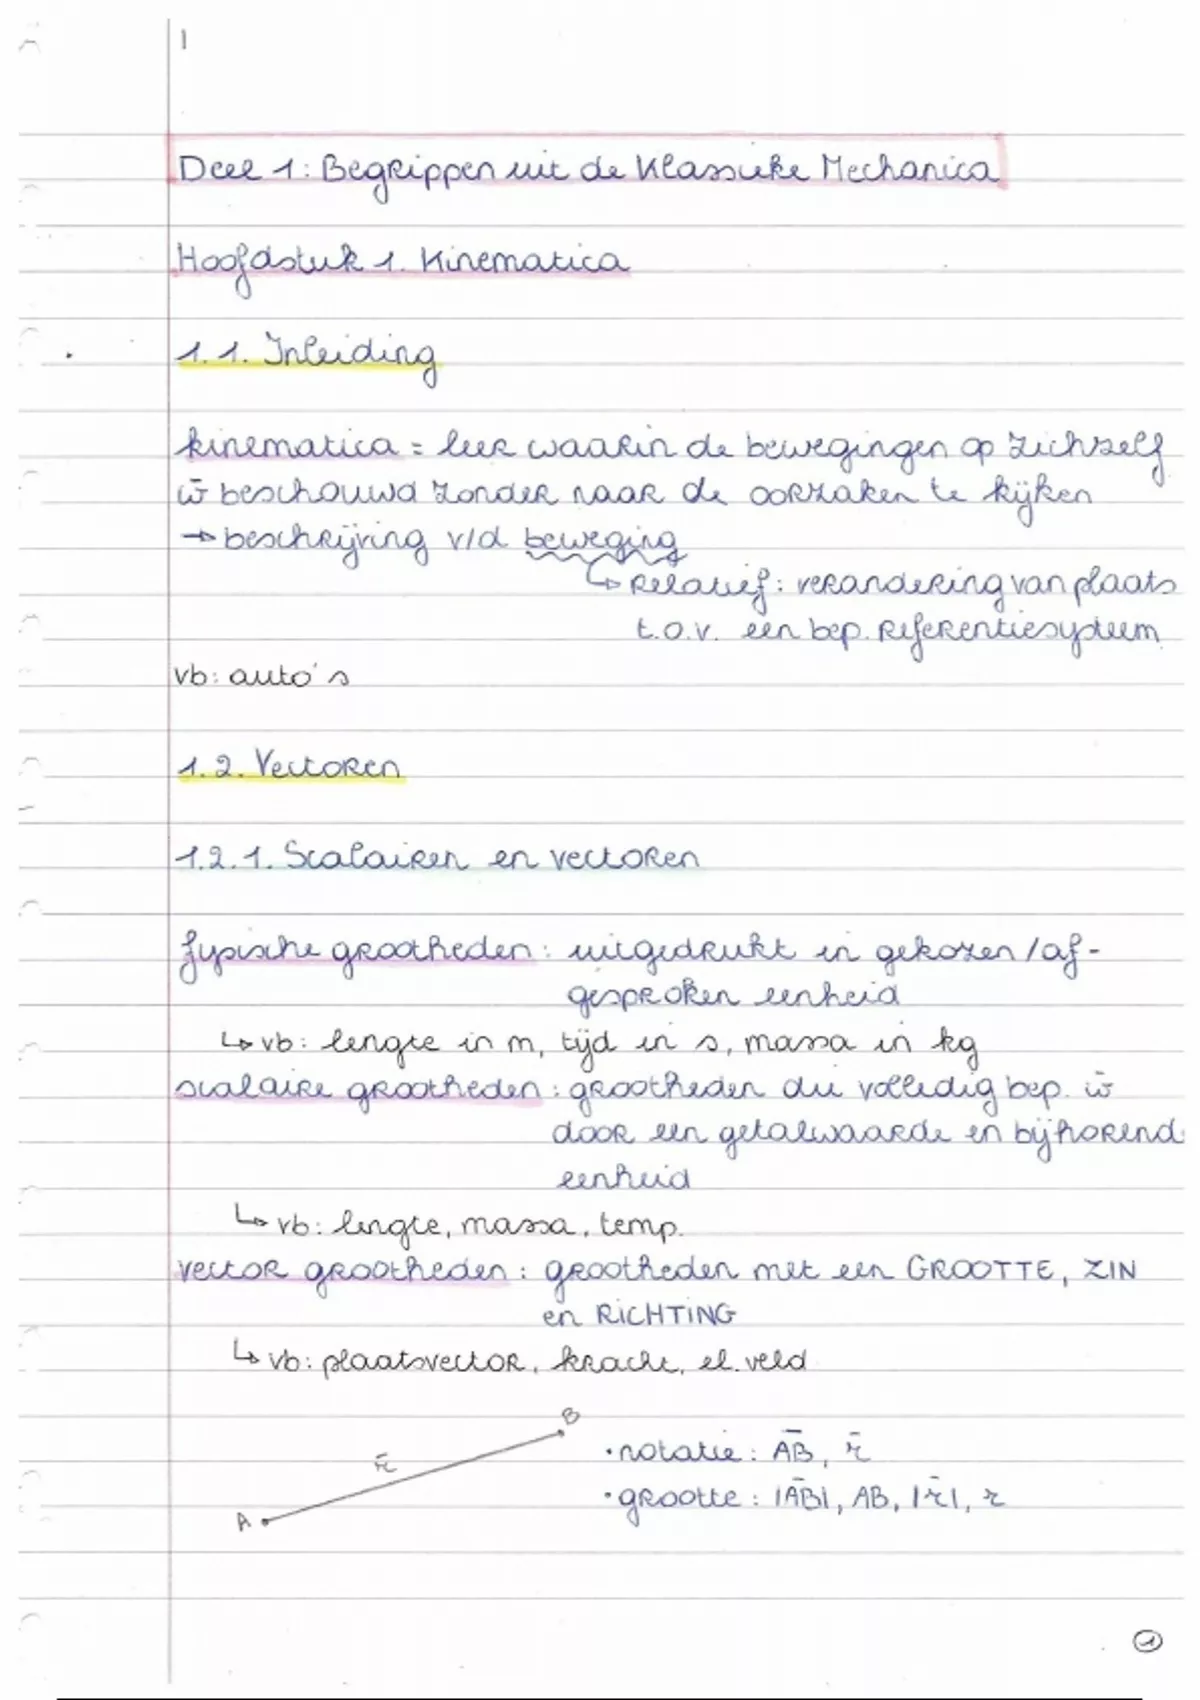 Deel 1: Begrippen uit de Klassieke Mechanica
Hoofdstuk 1. Kinematica
1.1. Inleiding
kinematica = leer waarin de bewegingen op zichzelf
w̄ beschouwd zonder naar de oorzaken te kijken
→ beschrijving v/d beweging
↳ relatief: verandering van plaats
t.o.v. een bep. referentiesysteem
vb: auto's
1.2. Vectoren
1.2.1. Scalairen en vectoren
fysische grootheden: uitgedrukt in gekozen/af-
gesproken eenheid
↳ vb: lengte in m, tijd in s, massa in kg
scalaire grootheden: grootheden die volledig bep. w̄
door een getalwaarde en bijhorend
eenheid
↳ vb: lengte, massa, temp.
vector grootheden: grootheden met een GROOTTE, ZIN
en RICHTING
↳ vb: plaatsvector, kracht, el. veld
B
r̄
A
• notatie: A̅B̅, r̄
• grootte: |A̅B̅|, AB, |r̄|, r
1